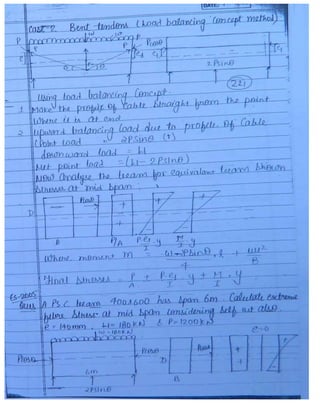 Case 2. Bent tendons (Load balancing Concept method)
P P
Pcosθ
e
2Psinθ
221
Using load balancing Concept
1 Make the profile of Cable straight from the point
where it is at end
2 Upward balancing load due to profile of Cable
Point load = 2Psinθ (↑)
downward load = W
Net point load = (W - 2Psinθ)
Now analyse the beam for equivalent beam shown
stresses at mid span
D Pcosθ
B P/A P.e₁/I y M/I y
Where moment M = (W - 2Psinθ).l / 4 + wl²/8
Final stresses = P/A ± P.e₁/I y ± M/I . y
ES-2005 A PSC beam 400x600 has span 6m. Calculate extreme
fibre stress at mid span considering self wt also
e = 140mm, W = 180kN & P = 1200kN
e=0
Pcosθ Pcosθ D Pcosθ
6m
B
2Psinθ